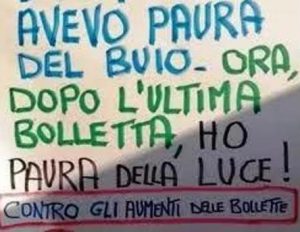 AVEVO PAURA
DEL BUIO- ORA,
DOPO L'ULTIMA
BOLLETTA, HO
PAURA DELLA LUCE!
CONTRO GLI AUMENTI DELLE BOLLETTE